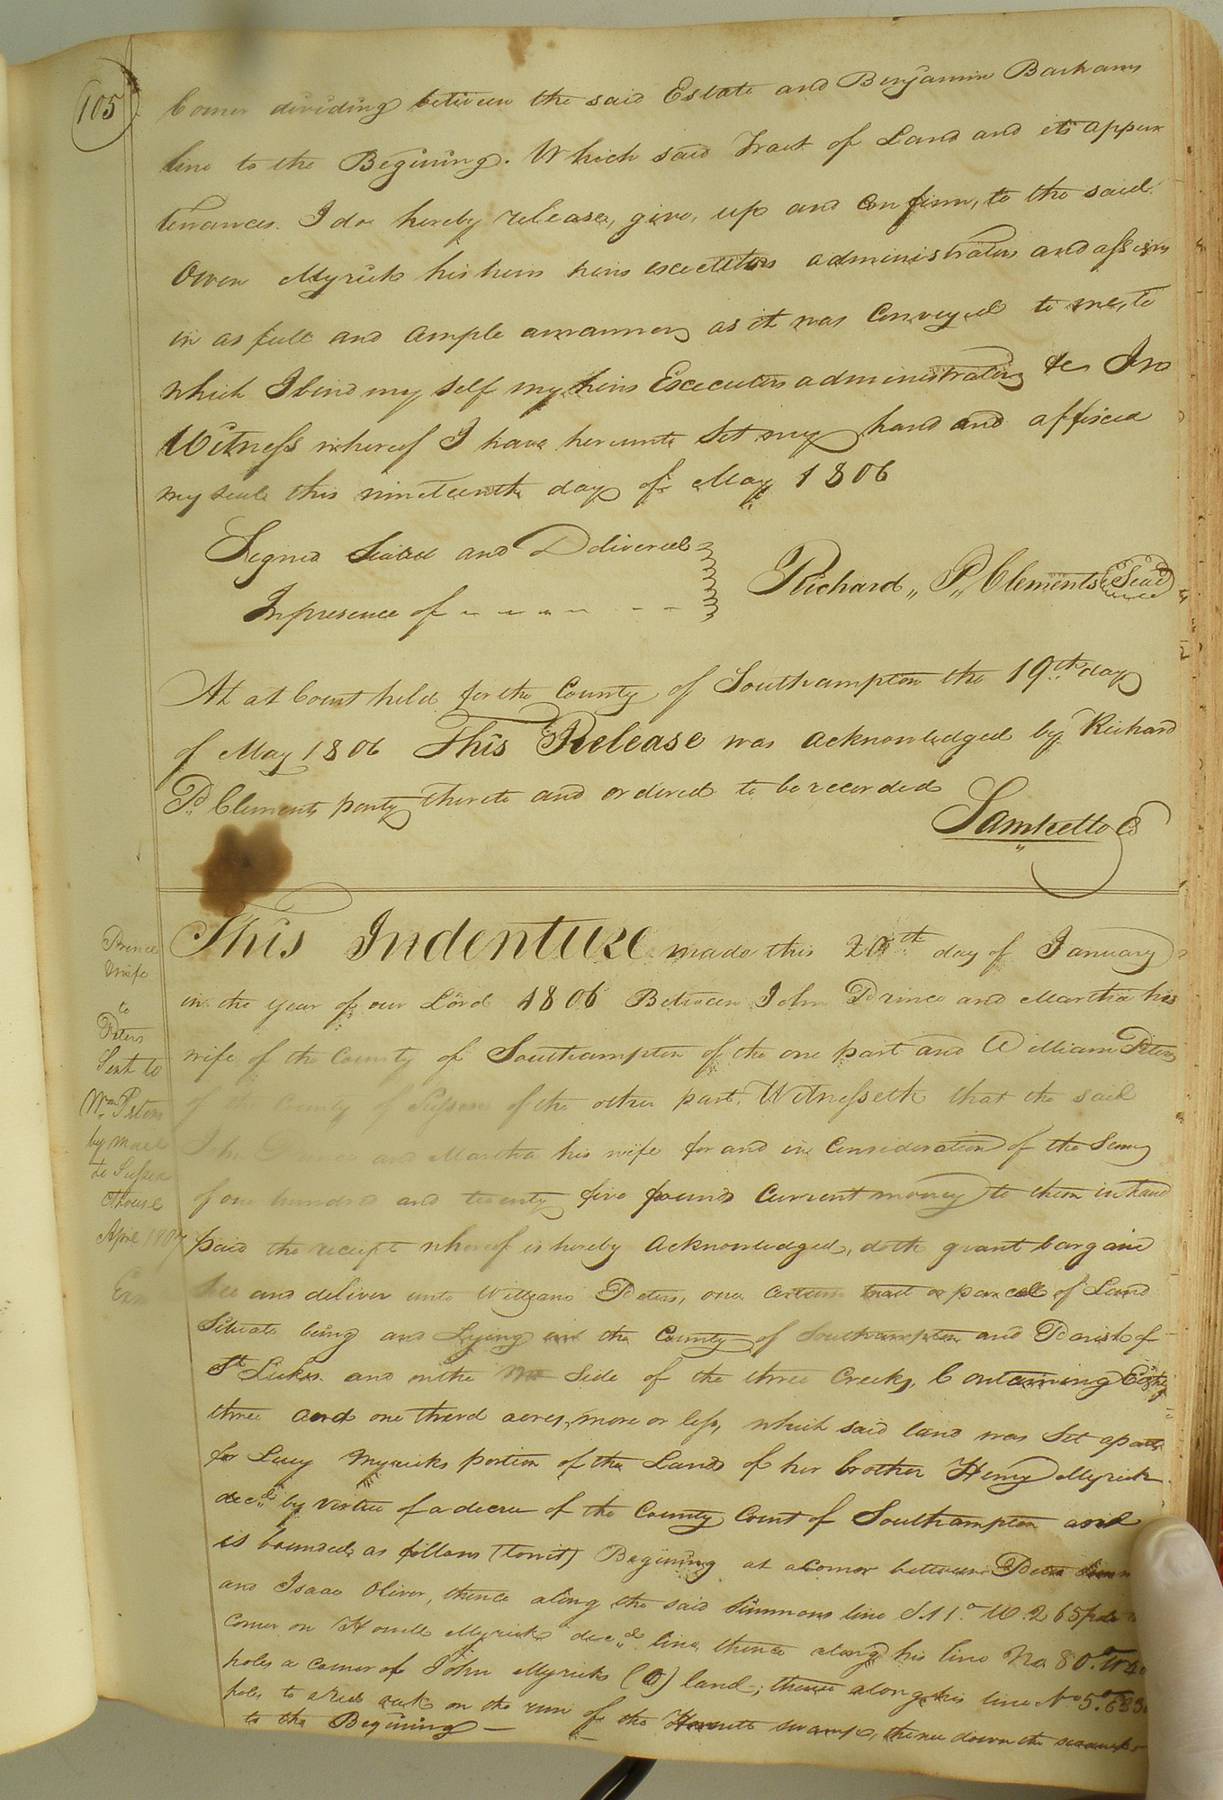 105
Corner dividing between the said Estate and Benjamin Barhams
line to the Begining. Which said Tract of Land and its appur
tenances. I do hereby release, give, up and Confirm, to the said
Owen Myrick his heirs heirs executors administrators and assigns
in as full and ample amanner, as it was Conveyed to me, to
which I bind my self my heirs Executors administrators &c In
Witness whereof I have hereunto Set my hand and affixed
my seale this nineteenth day of May 1806
Signed Sealed and Delivered
In presence of
Richard P. Clements Seal
At at Court held for the County of Southampton the 19th day
of May 1806 This Release was acknowledged by Richard
P. Clements party thereto and ordered to be recorded
Saml Kello C
Prince
wife
to
Peters
Sent to
Wm Peters
by mail
to Sussex
Chouse
April
Exn
This Indenture made this day of January
in the year of our Lord 1806 Between John Prince and Martha his
wife of the County of Southampton of the one part and William Peters
of the County of Sussex of the other part. Witnesseth that the said
John Prince and Martha his wife for and in Consideration of the Sum
of one hundred and twenty five pounds Current money to them in hand
paid the receipt whereof is hereby acknowledged, doth grant bargain
and deliver unto William Peters, one certain tract or parcell of Land
Situate being and Lying in the County of Southampton and Parish of
St Lukes and on the Side of the three Creeks, Containing Eighty
three and one third acres, more or less, which said land was Set apart
for Lucy Myricks portion of the Lands of her brother Henry Myrick
decd by virtue of a decree of the County Court of Southampton and
is bounded as follows (towit) Begining at a corner between
and Isaac Oliver, thence along the said Simmons line S. 11° W. 265 pole
corner on Howell Myrick decd line, thence along his line No 80°
poles a corner of John Myricks (O) land; thence along his line No 5°
poles to a Red oak on the run of the swamp, thence down the swamp
to the Begining